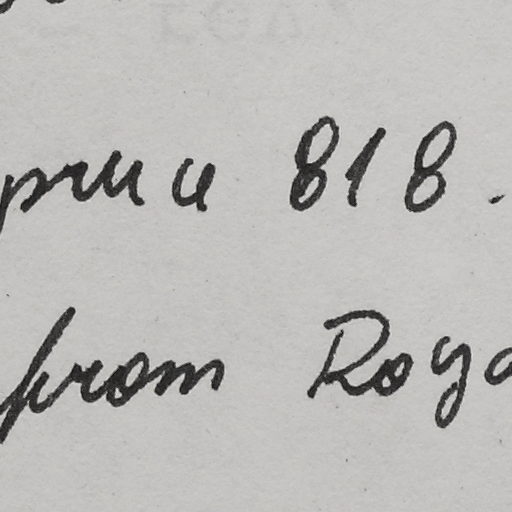 price 818.
from Roya